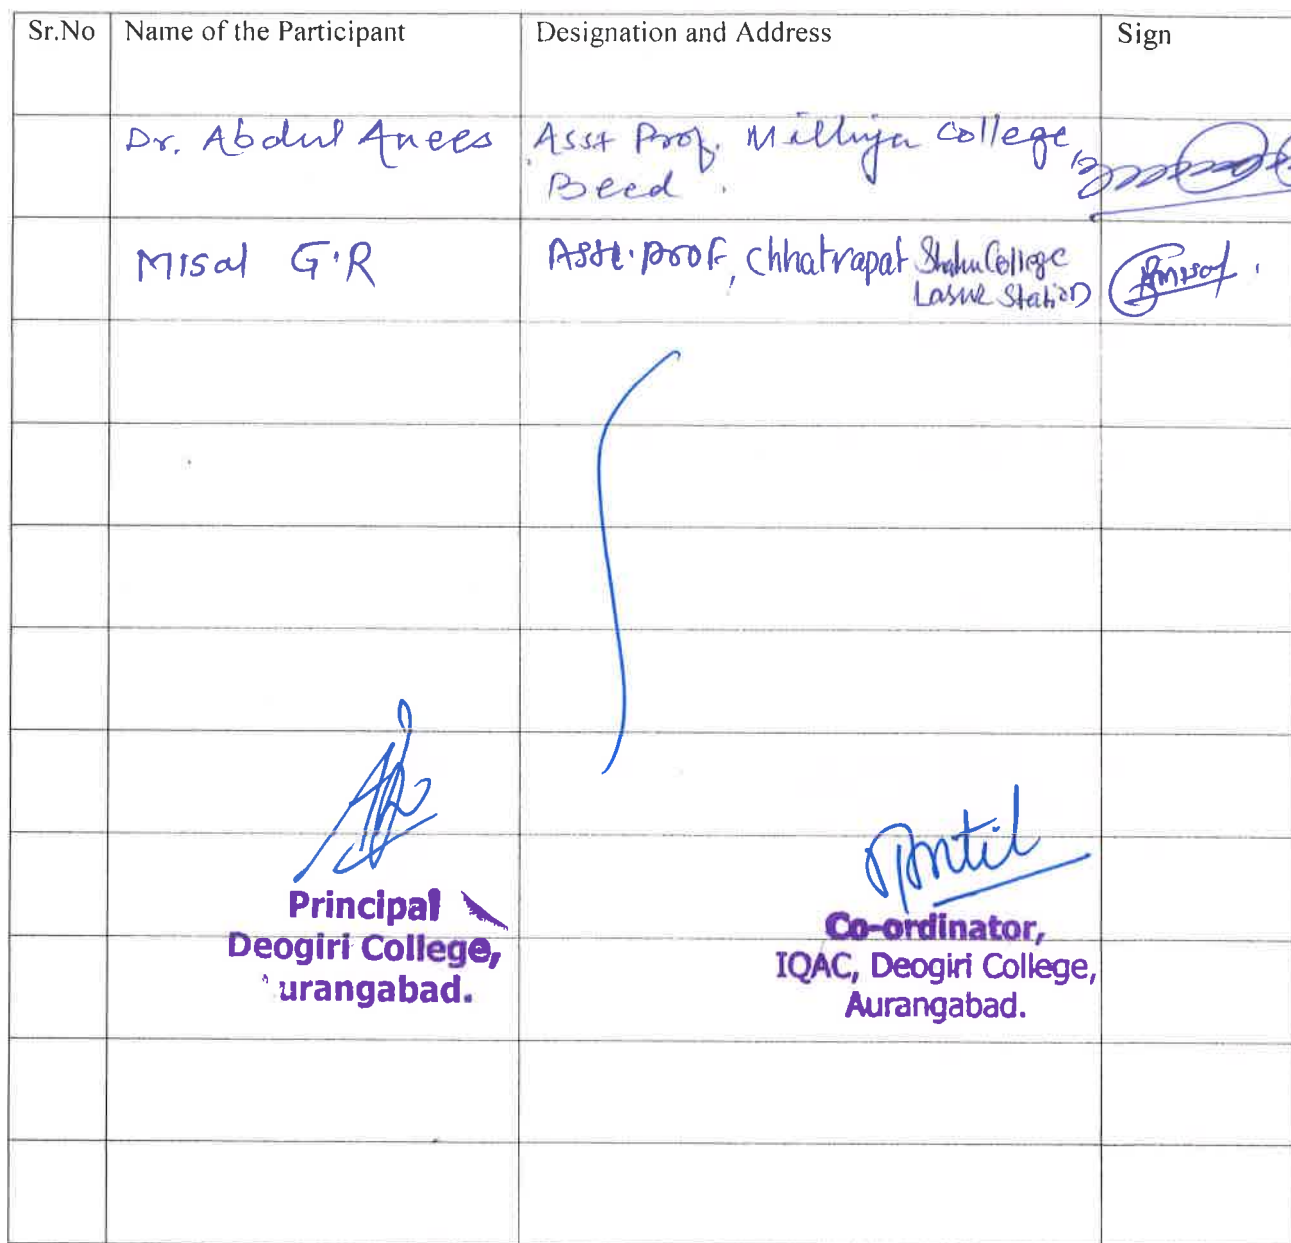 Sr.No Name of the Participant Designation and Address Sign
Dr. Abdul Anees Asst Prof. Milliya College,
Beed.
Misal G.R Asst. prof, Chhatrapat Shahu College
Lasur Station
Principal
Deogiri College,
urangabad.
Co-ordinator,
IQAC, Deogiri College,
Aurangabad.